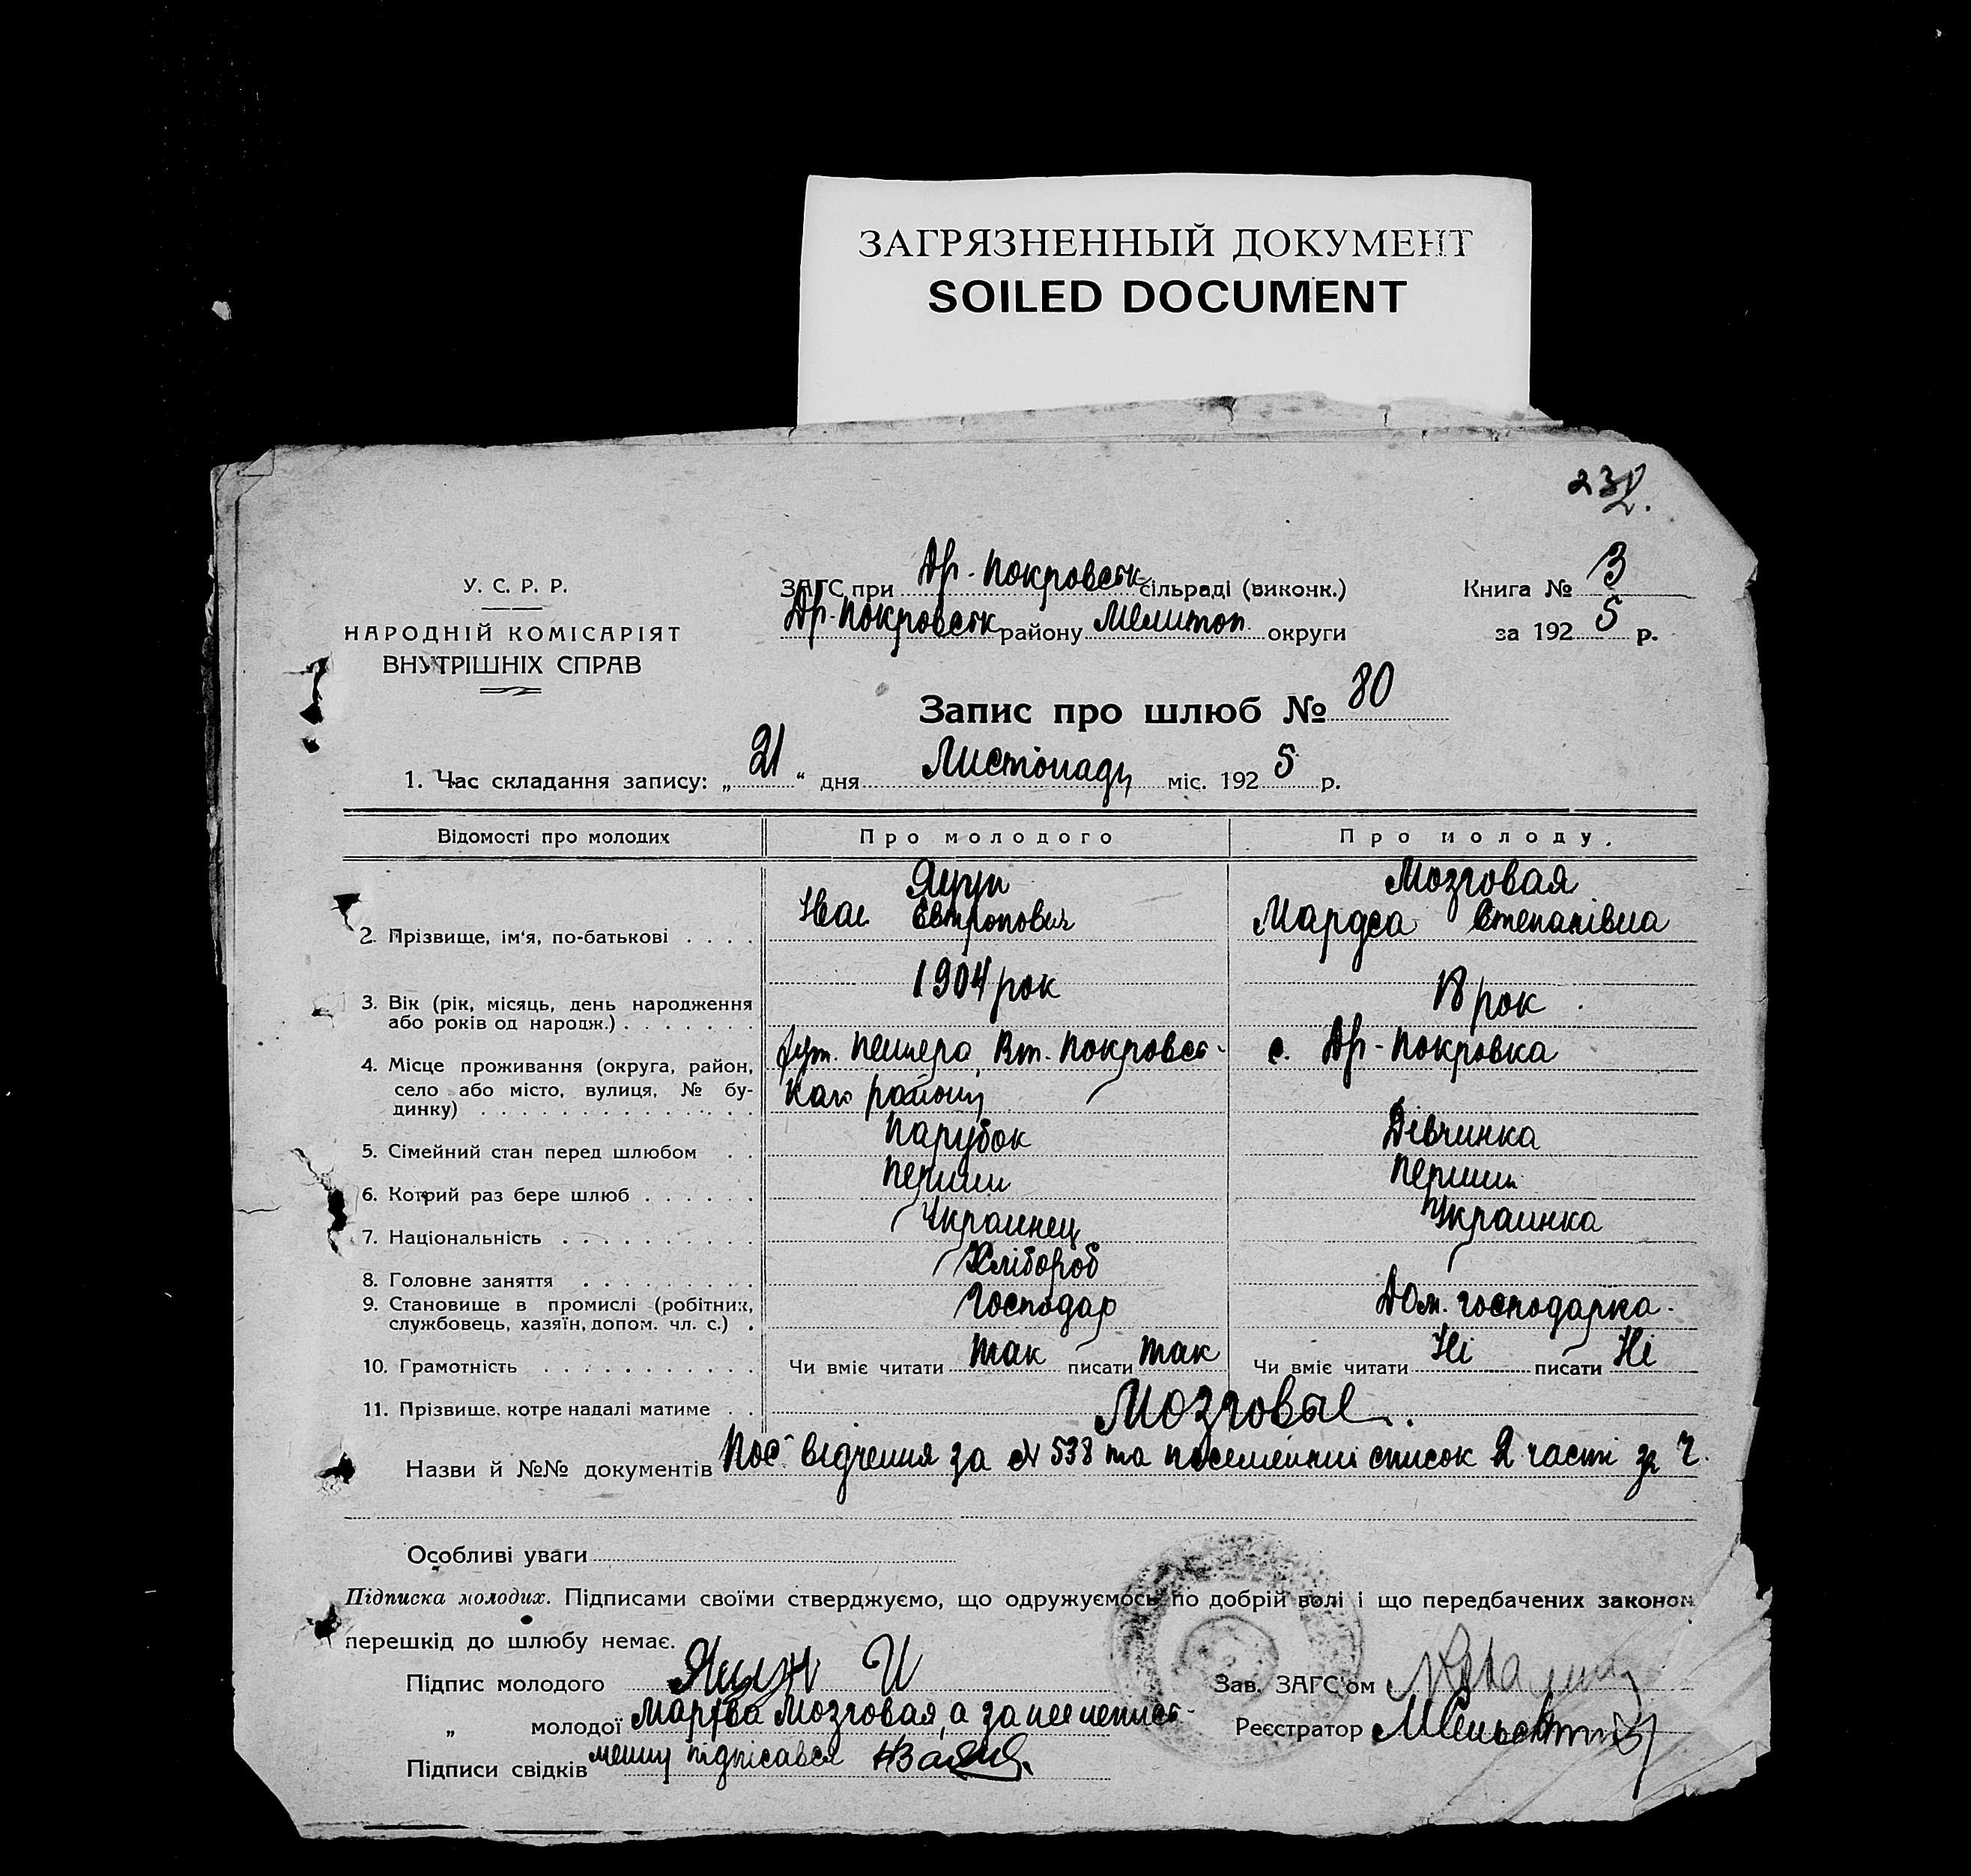 ЗАГРЯЗНЕННЫЙ ДОКУМЕНТ
SOILED DOCUMENT
232.
У. С. Р. Р.
НАРОДНІЙ КОМІСАРІЯТ
ВНУТРІШНІХ СПРАВ
ЗАГС при Др.-Покровськ сільраді (виконк.)
Др.-Покровськ району Мелитоп. округи
Книга № 3
за 192 5 р.
Запис про шлюб № 80
1. Час складання запису: „ 21 “ дня Листопаду міс. 192 5 р.
Відомості про молодих Про молодого Про молоду.
2. Прізвище, ім‘я, по-батькові . . . .
Іван Євтропович
Мозговая
Степанівна
3. Вік (рік, місяць, день народження
або років од народж.) . . . . . . .
1904 рок
18 рок
4. Місце проживання (округа, район,
село або місто, вулиця, № бу-
динку) . . . . . . . . . . . . . .
Вт. Покровсь-
кого району
с. Др-Покровка
5. Сімейний стан перед шлюбом . .
Парубок
Дівчинка
6. Котрий раз бере шлюб . . . . . .
Перший
Перший
7. Національність . . . . . . . . . .
Украинец
Украинка
8. Головне заняття . . . . . . . . .
Хлібороб
9. Становище в промислі (робітник,
службовець, хазяїн, допом. чл. с.) .
Господар
Дом. господарка.
10. Грамотність . . . . . . . . . . .
Чи вміє читати так писати так
Чи вміє читати Ні писати Ні
11. Прізвище, котре надалі матиме . .
Мозговые.
Назви й №№ документів Посвідчення за № 538 та посемейний список 2 часті за
Особливі уваги
Підписка молодих. Підписами своїми стверджуємо, що одружуємось по добрій волі і що передбачених законом
перешкід до шлюбу немає.
Підпис молодого И
„ молодої Мозговая, а за нее неписс-
Підписи свідків менну підписався
Зав. ЗАГС'ом
Реєстратор